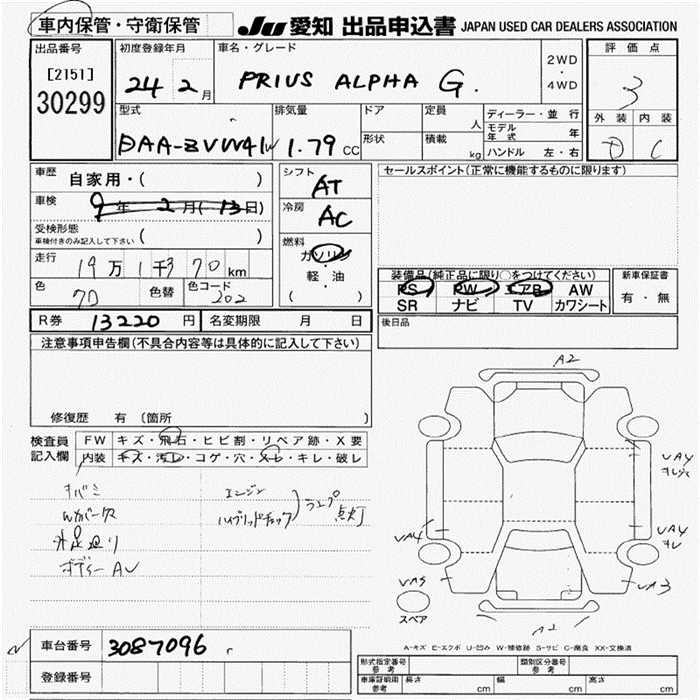 車内保管・守衛保管
JU 愛知 出品申込書 JAPAN USED CAR DEALERS ASSOCIATION
出品番号 初度登録年月 車名・グレード 評価点
[2151]
30299
24 2月
PRIUS ALPHA G.
2WD
・
4WD
3
型式 排気量 ドア 定員 人 ディーラー・並行
モデル年式 年
形状 積載 kg ハンドル 左・右
外装 内装
DAA-ZVW41W 1.79 CC
D C
車歴 自家用・( )
車検 9年 2月(13日)
受検形態
車検付きのみ記入して下さい ( )
走行 19万 1千370 km
色 70 色替 色コード 202
シフト AT
冷房 AC
燃料
ガソリン
・
軽・油
( )
セールスポイント(正常に機能するものに限ります)
装備品(純正品に限り○をつけてください) 新車保証書
PS PW エアB AW 有・無
SR ナビ TV カワシート
R券 13220 円 名変期限 月 日
後日品
注意事項申告欄(不具合内容等は具体的に記入して下さい)
修復歴 有 (箇所
検査員 FW キズ・飛石・ヒビ割・リペア跡・X要
記入欄 内装 キズ・汚レ・コゲ・穴・スレ・キレ・破レ
エンジン
ランプ
点灯
ボディー AU
A2
UA4
UA4
UA4
UA5
UA3
スペア
A2
A-キズ E-エクボ U-凹み W-補修跡 S-サビ C-腐食 XX-交換済
車台番号 3087096
登録番号
形式指定番号 参考 類別区分番号 参考
車庫証明用 参考 長さ cm 幅 cm 高さ cm